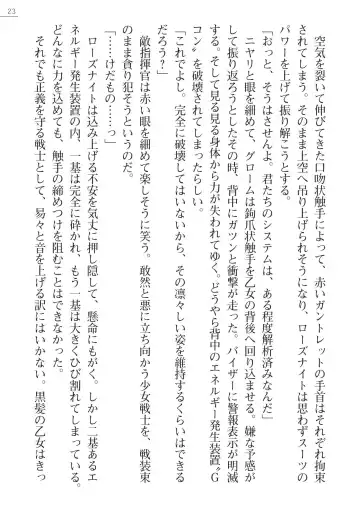 23
　空気を裂いて伸びてきた口吻状触手によって、赤いガントレットの手首がそれぞれ拘束
されてしまう。そのまま上空へ吊り上げられそうになり、ローズナイトは思わずスーツの
パワーを上げて振り解こうとする。
「おっと、そうはさせんよ。君たちのシステムは、ある程度解析済みなんだ」
　ニヤリと眼を細めて、グロームは鉤爪状触手を乙女の背後へ回り込ませる。嫌な予感が
して振り返ろうとしたその時、背中にガツンと衝撃が走った。バイザーに警報表示が明滅
する。そして見る見る身体から力が失われてゆく。どうやら背中のエネルギー発生装置〝G
コン〟を破壊されてしまったらしい。
「これでよし。完全に破壊してはいないから、その凛々しい姿を維持するくらいはできる
だろう？」
　敵指揮官は赤い眼を細めて楽しそうに笑う。敢然と悪に立ち向かう少女戦士を、戦装束
のまま貪り犯そうというのだ。
「……けだもの……っ」
　ローズナイトは込み上げる不安を気丈に押し隠して、懸命にもがく。しかし二基あるエ
ネルギー発生装置の内、一基は完全に砕かれ、もう一基は大きくひび割れてしまっている。
どんなに力を込めても、触手の締めつけを阻むことはできなかった。
　それでも正義を守る戦士として、易々と音を上げる訳にはいかない。黒髪の乙女はきっ